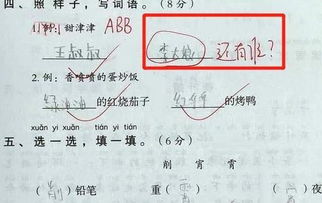 四、照样子，写词语。（8分）
1.例：甜津津 ABB
王叔叔 李大娘 还有谁？
2.例：香喷喷的蛋炒饭
绿油油的红烧茄子 红彤彤的烤鸭
xuǎn yi xuǎn tián yi tián
五、选一选，填一填。（6分）
削 宵 霄
（削）铅笔 重（霄） （宵）夜